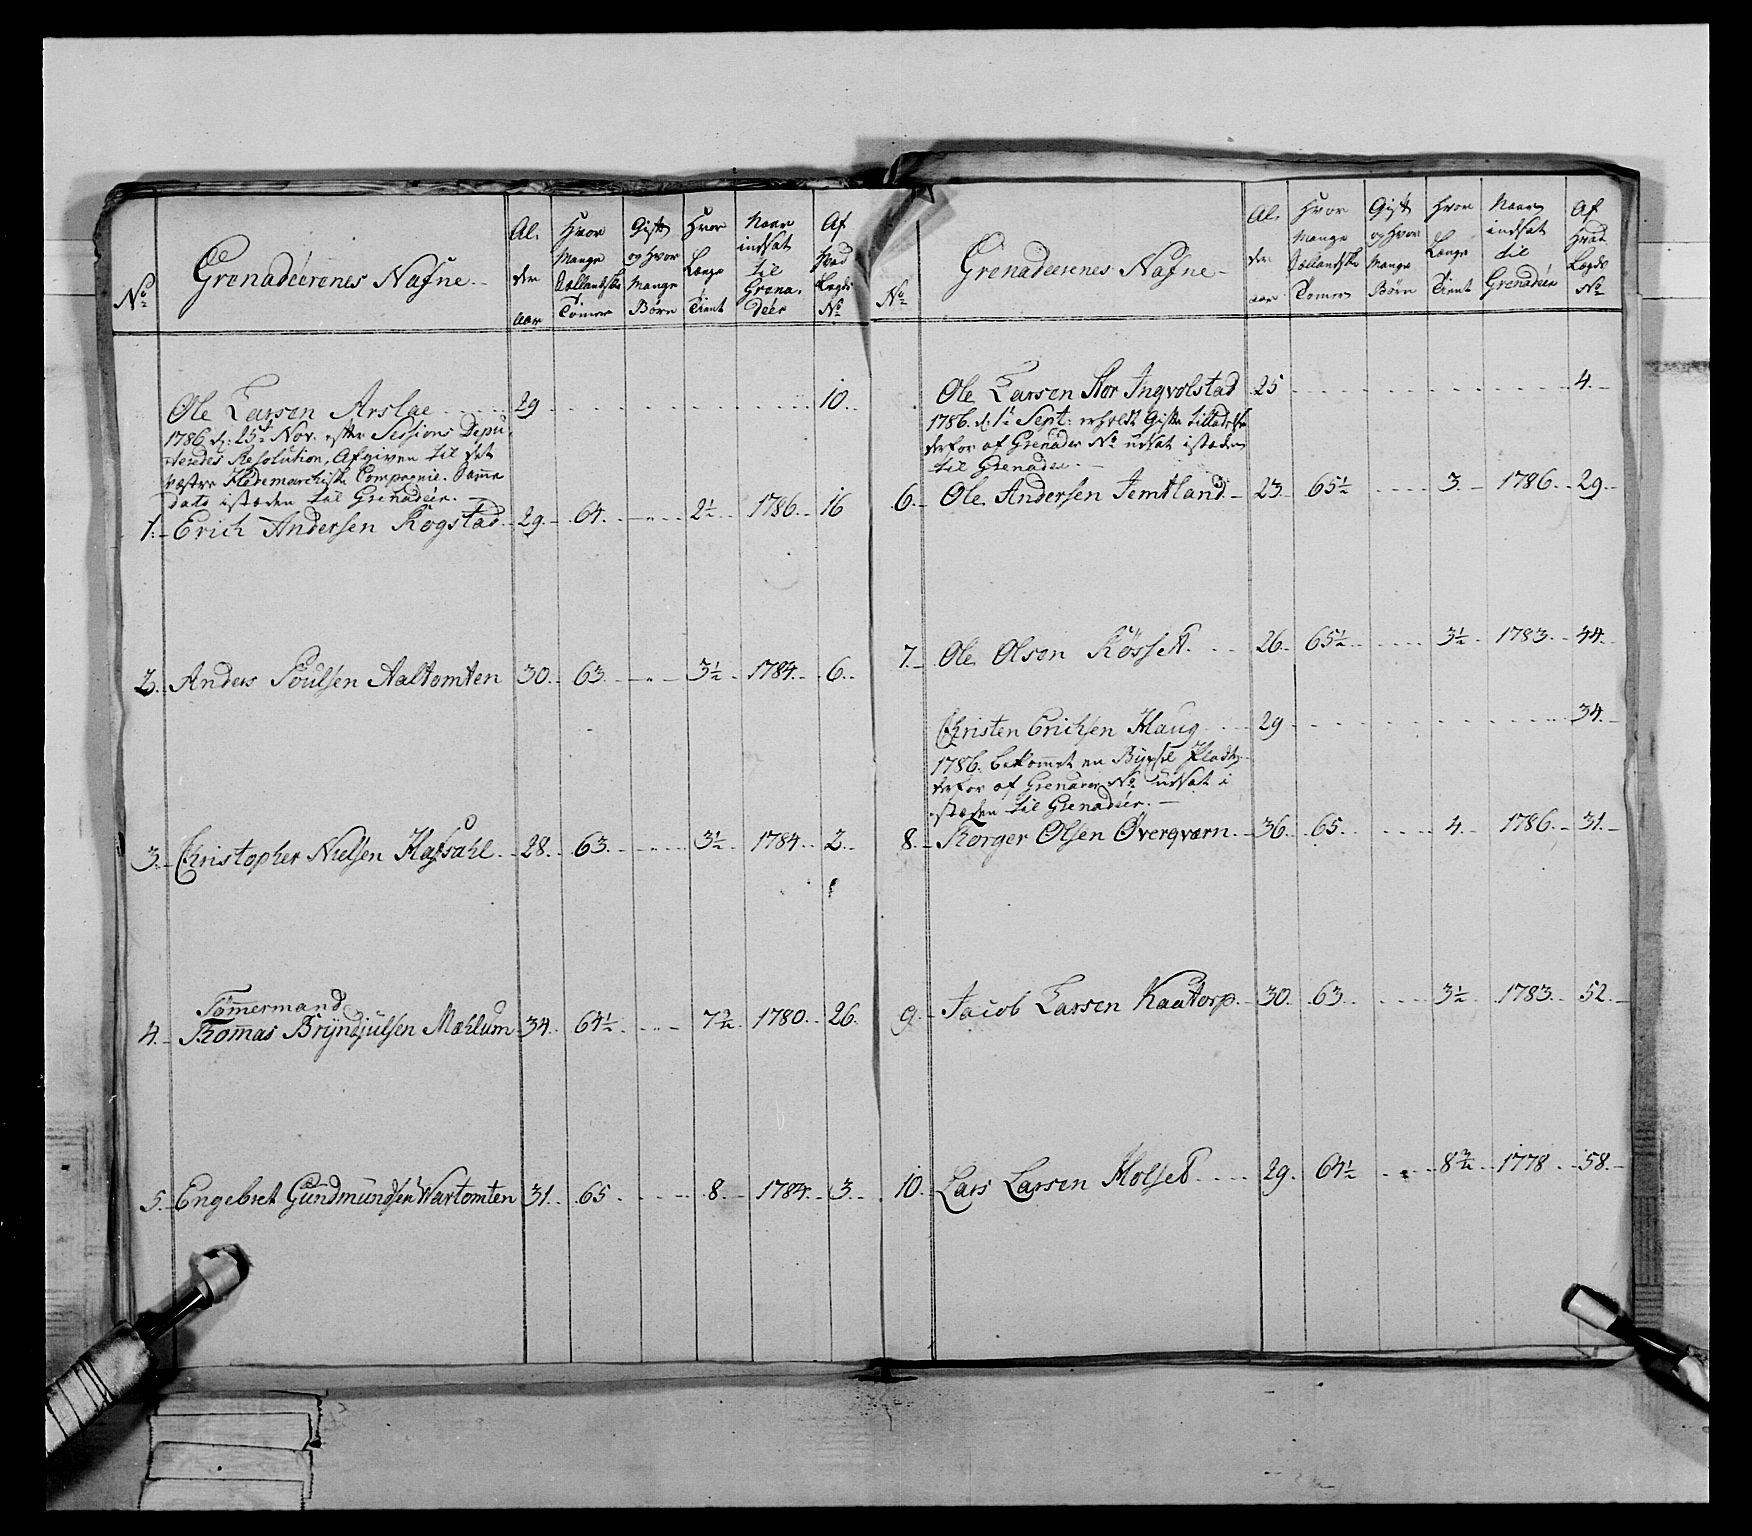 No
Grenadeerenes Nafne
Al-
der
aar
Hvor
Mange
Sællandske
Tomer
Gift
og hvor
Mange
Børn
Hvor
Længe
Tient
Naar
indsat
til
Grena-
deer
Af
Hvad
Lægds
No
Ole Larsen Arslae 29 10
1786 d: 25de Nov. efter Sessions Depu-
teredes Resolution, Afgiven til det
Hedemarchiske Compagnie. Samme
dato istæden til Grenadeer.
1. Erich Andersen Rogstad 29 64 2½ 1786 16
2. Anders Poulsen Aaltomten 30 63 3½ 1784 6
3. Christopher Nielsen Hafsahl 28 63 3½ 1784 2
Tømmermand
4. Thomas Bryndjulsen Mæhlum 34 64½ 7½ 1780 26
5. Engebret Gundmundsen Wartomten 31 65 8 1784 3
No
Grenadeerenes Nafne
Al-
der
aar
Hvor
Mange
Sællandske
Tomer
Gift
og hvor
Mange
Børn
Hvor
Længe
Tient
Naar
indsat
til
Grenadeer
Af
Hvad
Lægds
No
Ole Larsen Stor Ingvolstad 25 4
1786 d: 1te Sept: erholdt Gifte Tilladelse
derfor af Grenader No udsat istæden
til Grenadeer.
6. Ole Andersen Jemtland 23 65½ 3 1786 29
7. Ole Olsen Kösset 26 65½ 3½ 1783 44
Christen Erichsen Haug 29 34
1786 bekommet en Bÿxsel Plads,
derfor af Grenader No udsat i
stæden til Grenadeer.
8. Torger Olsen Øverqværn 36 65 4 1786 31
9. Jacob Larsen Kaatorp 30 63 3½ 1783 52
10. Lars Larsen Molset 29 64½ 8½ 1778 58